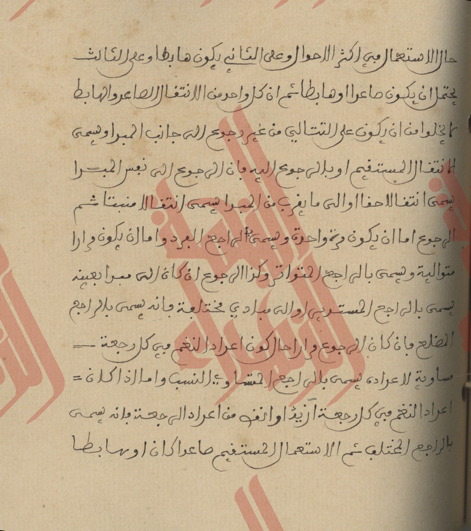 حال الاستعمال في اكثر الاحوال وعلى الثاني يكون هابطا وعلى الثالث
يحتمل ان يكون صاعدا او هابطا ثم ان كل واحد من الانتقال الصاعد والهابط
لا يخلوا من ان يكون على التتالي من غير رجوع الى جانب المبدا ويسمى
الانتقال المستقيم او بالرجوع اليه فان الرجوع الى نفس المبدا
يسمى انتقالا لاحقا والى ما يقرب من المبدا يسمى انتقالا منبتا ثم
الرجوع اما ان يكون مرة واحدة ويسمى الراجع الفرد واما ان يكون مرارا
متوالية ويسمى بالراجع المتواتر وكذا الرجوع ان كان الى مبدا بعينه
يسمى بالراجع المستدير او الى مبادي مختلفة فانه يسمى بالراجع
المضلع فان كان الرجوع مرارا حال كون اعداد النغم في كل رجعة
مساوية لاعداد يسمى بالراجع المتساوي النسب واما اذا كان
اعداد النغم في كل رجعة ازيد او انقص من اعداد الرجعة فانه يسمى
بالراجع المختلف ثم الاستعمال المستقيم صاعدا كان او هابطا